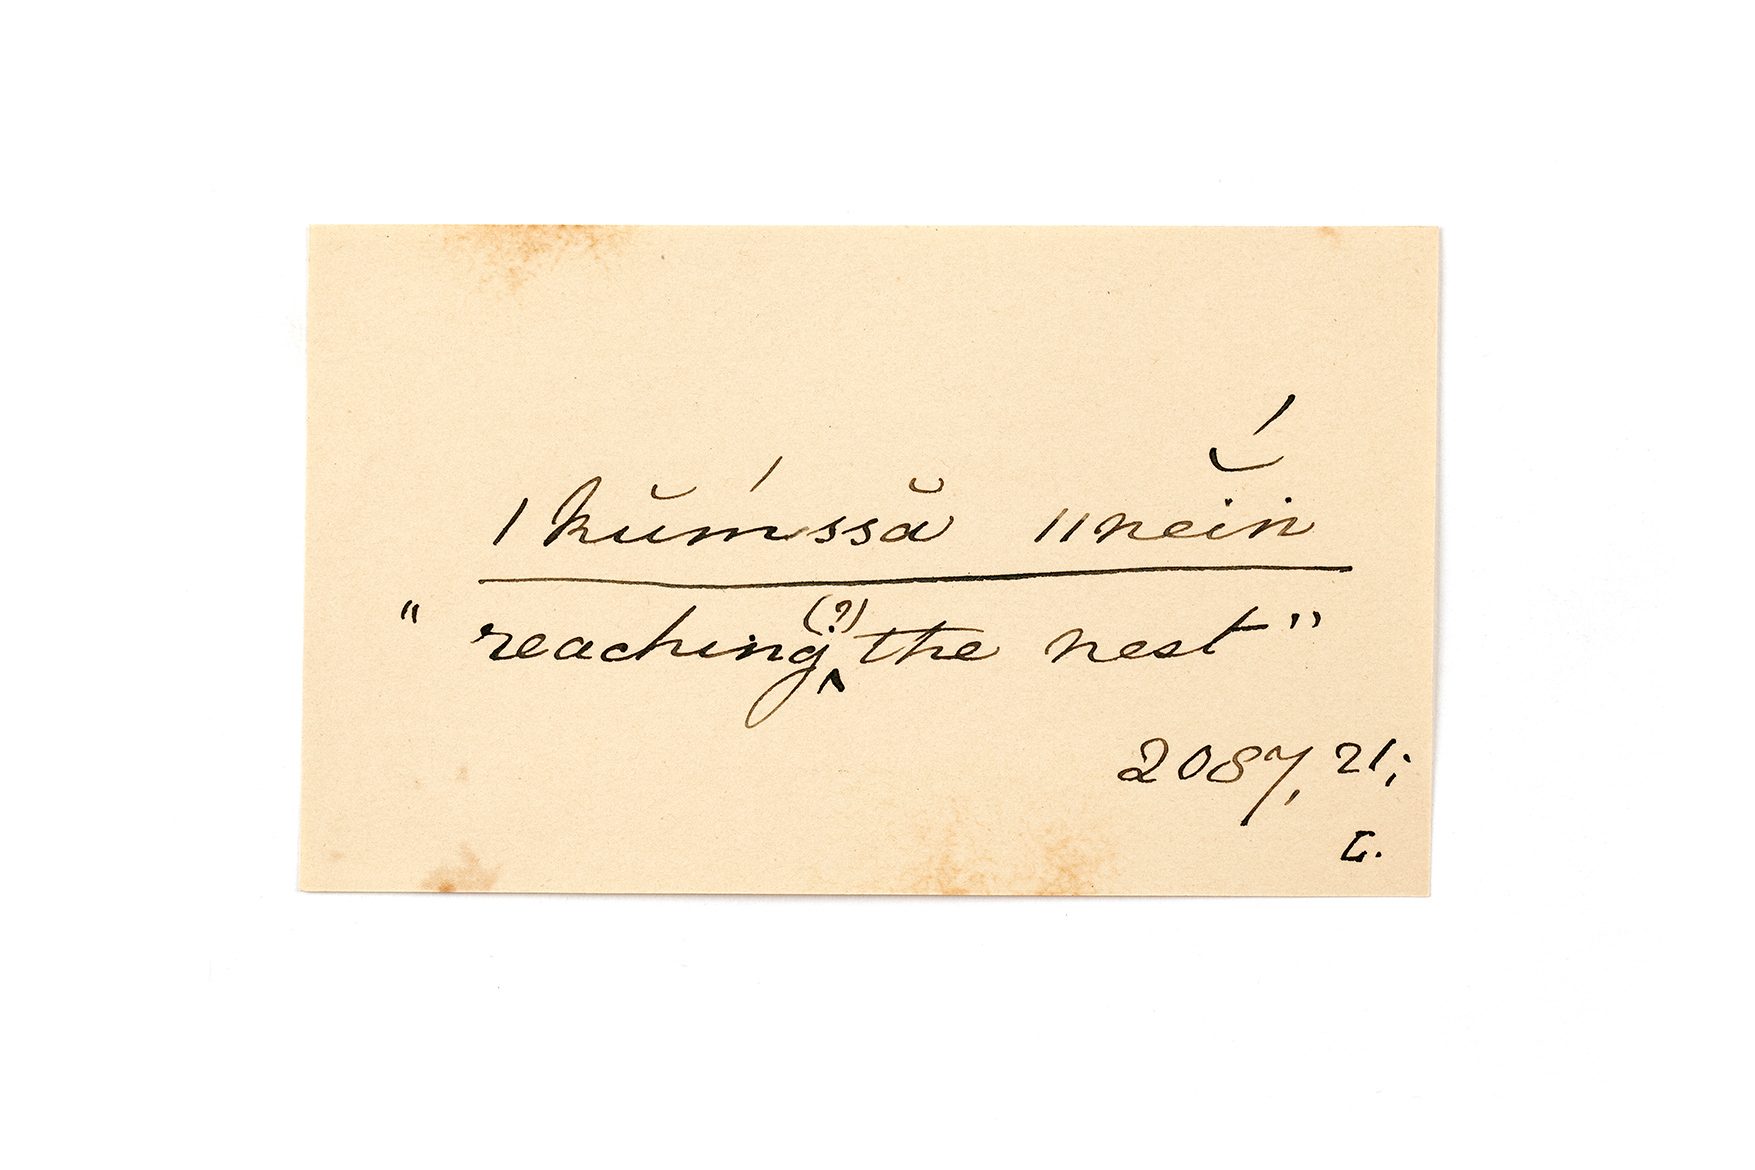 |kŭḿssă ||neĭ́n
“ reaching (?) the nest ”
2087, 21;
L.